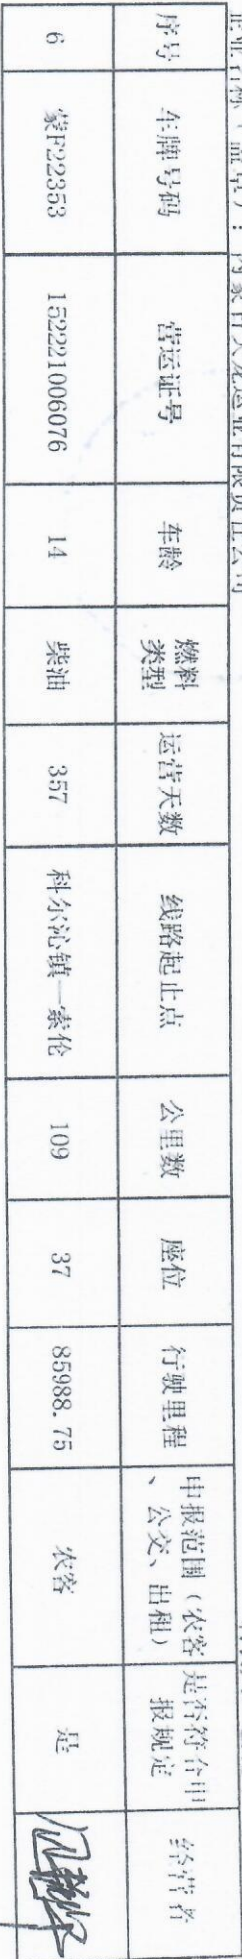 企业名称（盖章）：内蒙古天龙运业有限责任公司
序号 车牌号码 营运证号 车龄 燃料类型 运营天数 线路起止点 公里数 座位 行驶里程 申报范围（农客、公交、出租） 是否符合申报规定 经营者
6 蒙F22353 152221006076 14 柴油 357 科尔沁镇—索伦 109 37 85988.75 农客 是